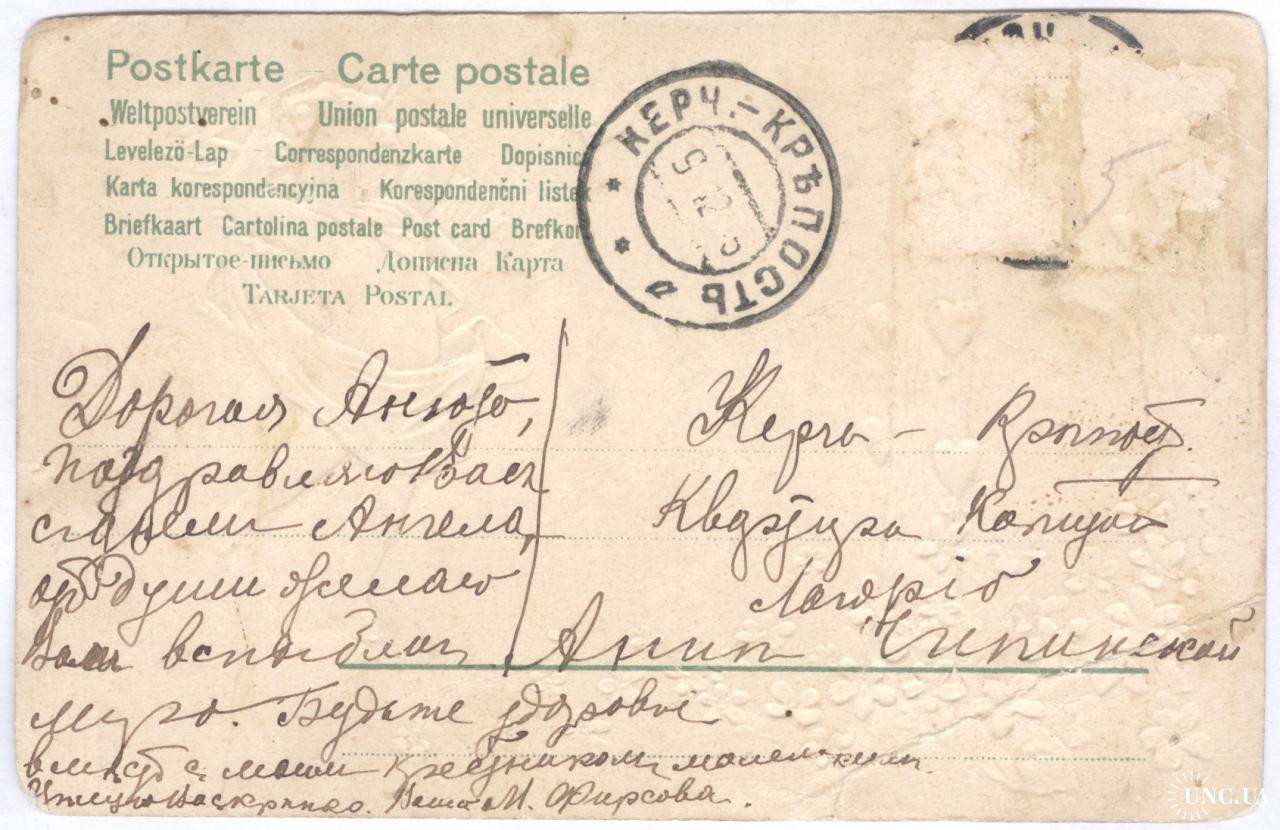 Postkarte – Carte postale
Weltpostverein Union postale universelle
Levelezö-Lap Correspondenzkarte Dopisnic
Karta korespondencyjna Korespondenčni listek
Briefkaart Cartolina postale Post card Brefkor
Открытое-письмо Дописна Карта
TARJETA POSTAL
КЕРЧ.-КРѢПОСТЬ
а
5
Дорогая Анюта,
поздравляю Васъ
съ днемъ Ангела,
отъ души желаю
Вамъ всѣхъ благъ
мира. Будьте здоровы
вмѣстѣ съ моим крестникомъ маленьким
Цѣлую М. Фирсова.
Керчь – Крѣпость.
Квартира
Аннѣ Чипинской
UNC.UA